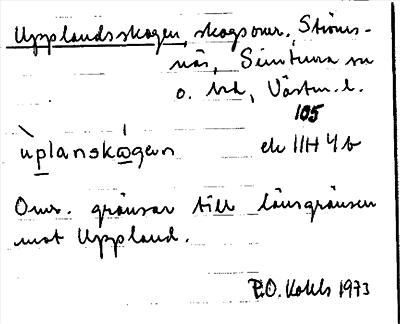 Upplandsskogen, skogsomr. Ströms-
näs, Simtuna sn
o. hd, Västm. l.
105
ùplanskó̱gern ek 11H 4b
Omr. gränsar till länsgränsen
mot Uppland.
P.O. Kohls 1973